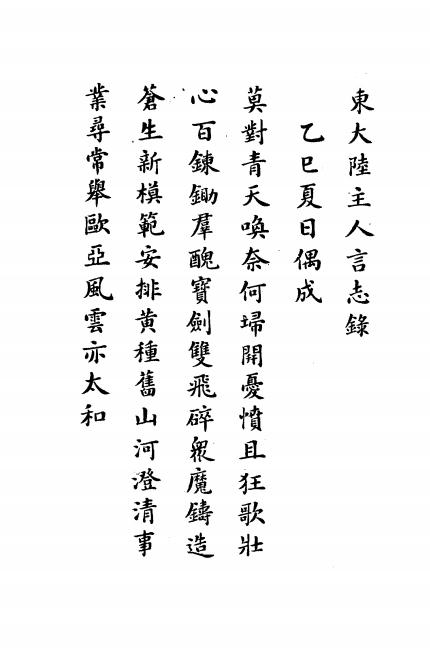 東大陸主人言志錄
乙巳夏日偶成
莫對青天喚奈何埽開憂憤且狂歌壯
心百鍊鋤羣醜寶劍雙飛碎衆魔鑄造
蒼生新模範安排黃種舊山河澄清事
業尋常舉歐亞風雲亦太和